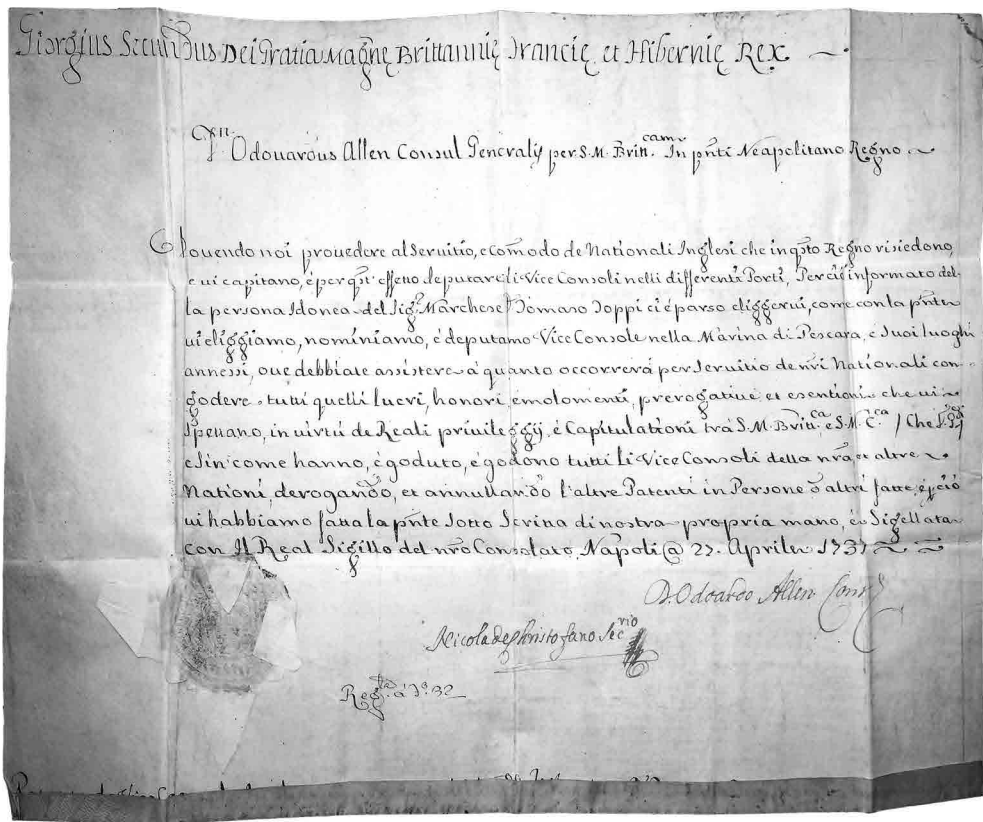 Giorgius Secundus Dei Gratia Magnę Brittannię Francię et Hibernię Rex
Odouardus Allen Consul Generalis per S. M. Britt.cam In pñti Neapolitano Regno
Douendo noi prouedere al Seruitio, e Com̃odo de Nationali Inglesi che in q̃sto Regno risiedono,
e ui capitano, é per q̃st' effetto deputare li Vice Consoli nelli differenti Porti, Perciò informato del-
la persona Idonea del Sig.r Marchese Romano Toppi ci é parso eliggerui, come con la pñte
ui eliggiamo, nominiamo, é deputamo Vice Console nella Marina di Pescara, é Suoi luoghi
annessi, oue debbiate assistere á quanto occorrerá per seruitio de nr̃i Nationali con
godere tutti quelli lucri, honori emolomenti, prerogatiue et esentioni che ui
spettano, in uirtú de Reali priuileggij é Capitulationi trá S. M. Britt.ca é S. M. C.ca / Che
e Sin'come hanno, é goduto, é godono tutti li Vice Consoli della nr̃a, et altre
Nationi, derogando, et annullando l'altre Patenti in Persone d'altri fatte, é p ció
ui habbiamo fatta la pñte Sotto Scritta di nostra propria mano, é Sigellata
con Il Real Sigillo del nr̃o Consolato, Napoli @ 27. Aprile 1737
D. Odoardo Allen Cons
Nicola de Christofano Sec.rio
Reg.ta á f.o 32